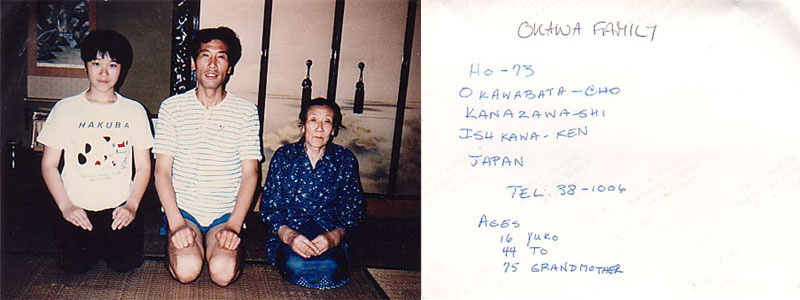 HAKUBA
OKAWA FAMILY
HO-73
OKAWABATA-CHO
KANAZAWA-SHI
ISHKAWA-KEN
JAPAN
TEL. 38-1006
AGES
16 YUKO
44 TO
75 GRANDMOTHER